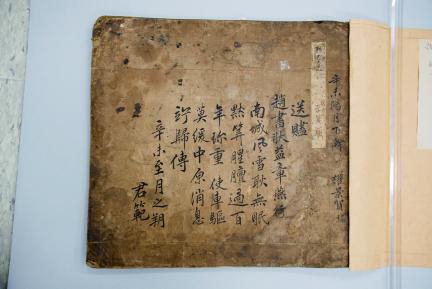 辛未陽月下澣
送贐
趙書狀益章燕行
南城風雪耿無眠
默筭腥膻過百
年珎重 使車驅
莫緩中原消息
竚歸傳
辛未至月之朔
君範